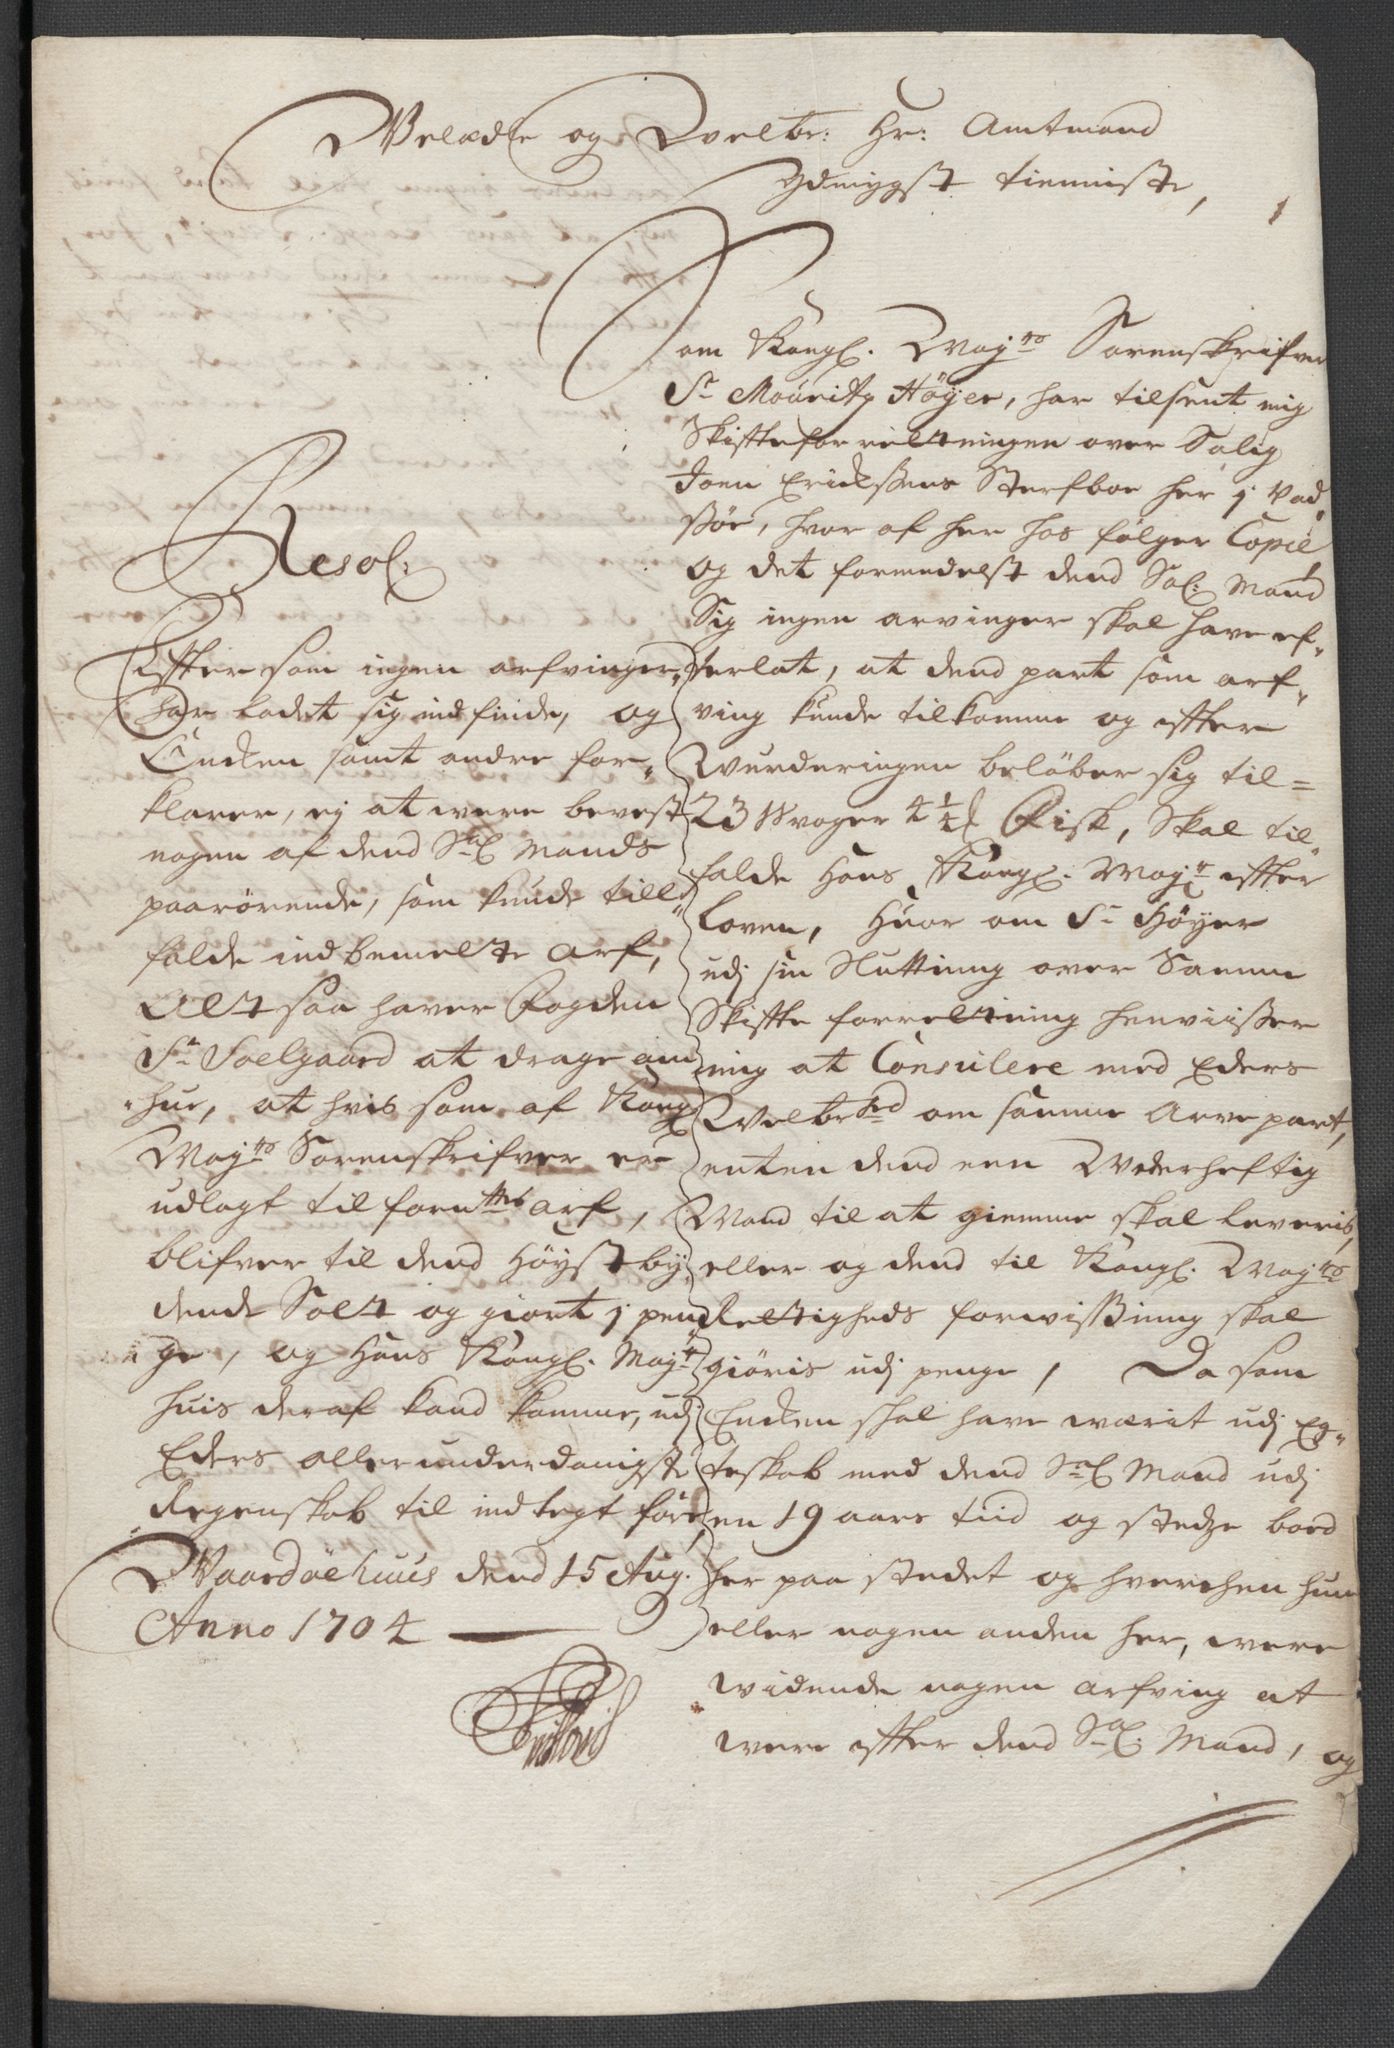 Velædle og Velbr: Hr: Amtmand
Ydmygst tienniste,
Som Kongl. Maytz Sorenskrifver
Sr Mouritz Høyer, har tilsent mig
Skifteforreltningen over Salig
Joen Erichssens Sterfboe her j Vad„
ssöe, hvor af her hos følger Copie,
og det formedelst dend Sal: Mand
Sig ingen arvinger skal have ef„
terlat, at dend part som arf„
ving kunde tilkomme og efter
Wurderingen beløber sig til =
23 Woger 4 1/4 Fisk, Skal til„
falde Hans Kongl. Mayt efter
Loven, Huor om Sr Høyer
udj sin Sluttning over Samme
Skifte forreltning henviisser
mig at Consulere med Eders
Velbrhed om samme Arve part,
enten dend een Wederheftig
Mand til at giemme skal leveris,
eller og dend til Kongl. Maytz
Rettigheds forvissning skal
giöris udj penge, Da som
Encken skal have værit udj Eg„
teskab med dend Sal Mand udj
en 19 aars tiid og stedze boed
her paa stedet og hverchen hun
eller nogen anden her, were
widende nogen arfving at
were efter dend Sal. Mand, og
Resol:
Efter som ingen arfvinger,
har ladet sig indfinde, og
Encken samt andre for„
klarer, ej at were bevist
nogen af dend Sal Mands
paarörende, som kunde till„
falde indbemelte arf,
Alt saa haver Fogden
Sr Soelgaard at drage om„
hue, at hvis som af Kongl
Maytz Sorenskrifver er
udlagt til fornte arf,
blifver til dend Höyst by„
dende Solt og giort j pen„
ge, og Hans Kongl. Mayt
huis deraf kand komme, udj
Eders allerunderdanigste
Regenskab til indtegt före,
Waardøehuus dend 15 Aug.
Anno 1704